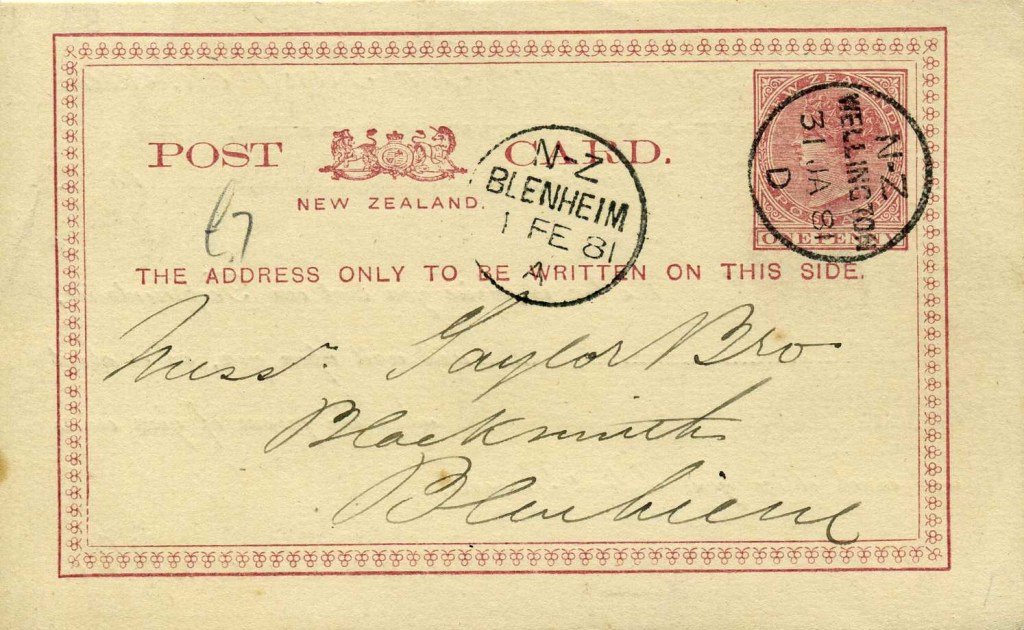 POST CARD.
NEW ZEALAND.
THE ADDRESS ONLY TO BE WRITTEN ON THIS SIDE.
NEW ZEALAND
ONE PENNY
N-Z
WELLINGTON
31 JA 81
D
N-Z
BLENHEIM
1 FE 81
A
Mess. Taylor Bro
Blacksmiths
Blenheim